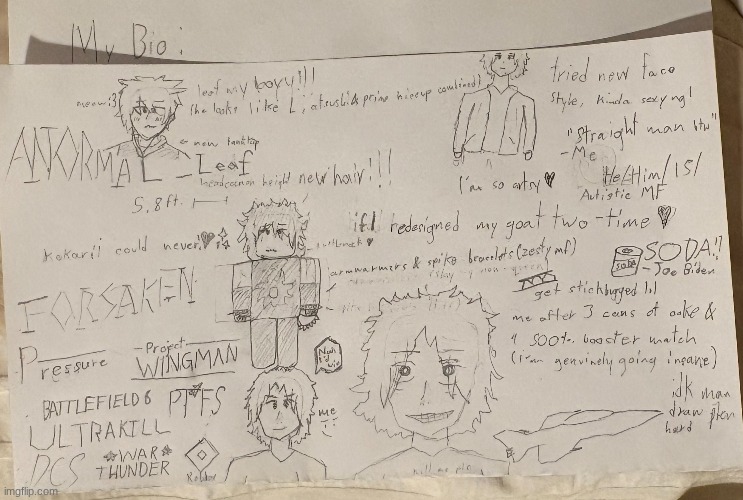 My Bio:
meow:3
leaf my boyy!!!
(he looks like L, atsushi & prime hineup combined)
tried new face
style, kinda sexy ng!
"Straight man btw"
- Me
← new tanktop
ANTORMAL - Leaf
headcanon height
new hair!!!
5,8 ft.
I'm so artsy
He/Him/15/
Autistic MF
Kokarii could never!
if I redesigned my goat two-time
turtleneck
armwarmers & spike bracelets (zesty mf)
SODA!!
- Joe Biden
SODA
get stickbugged lol
FORSAKEN
me after 3 cans of coke &
1 500% booster match
(i'am genuinely going insane)
Pressure
- Project -
WINGMAN
Nah
I'd
win
BATTLEFIELD 6
PTFS
ULTRAKILL
me
::
idk man
draw plen
hard
DCS
WAR
THUNDER
Roblox
kill me plz
imgflip.com